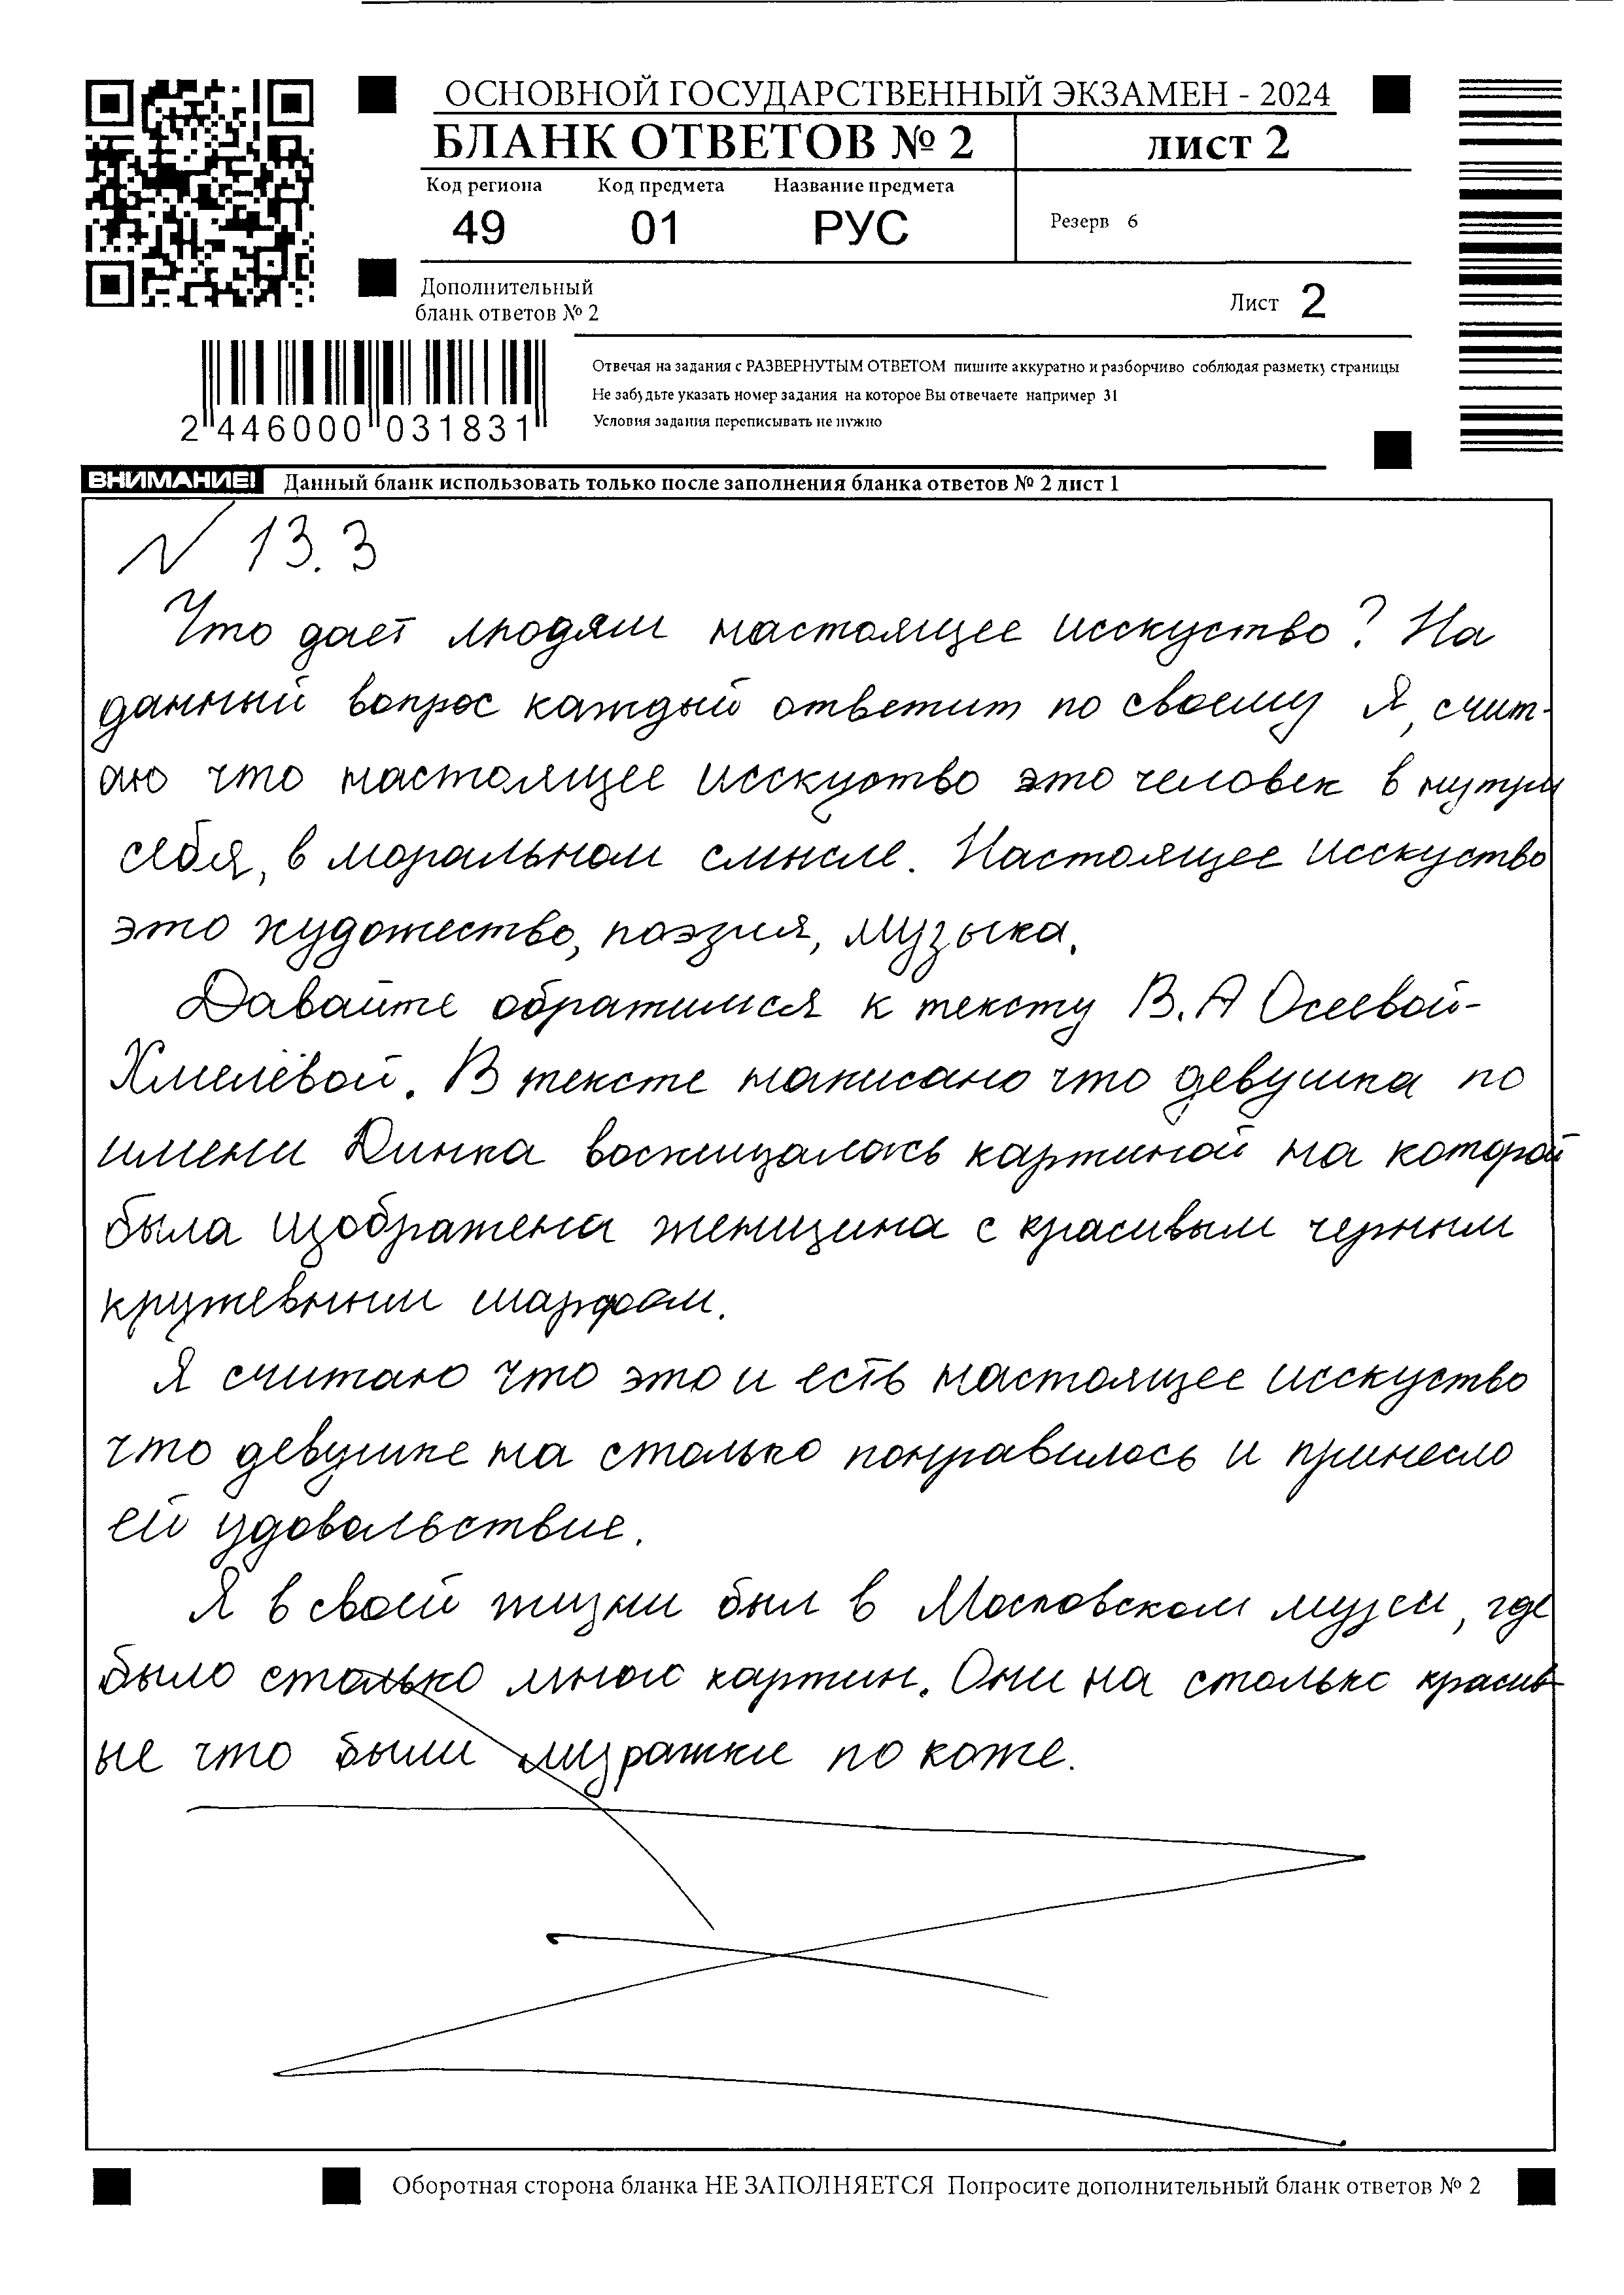 ОСНОВНОЙ ГОСУДАРСТВЕННЫЙ ЭКЗАМЕН - 2024
БЛАНК ОТВЕТОВ № 2
лист 2
Код региона Код предмета Название предмета
49 01 РУС
Резерв 6
Дополнительный
бланк ответов № 2
Лист 2
2 446000 031831
Отвечая на задания с РАЗВЕРНУТЫМ ОТВЕТОМ пишите аккуратно и разборчиво соблюдая разметку страницы
Не забудьте указать номер задания на которое Вы отвечаете например 31
Условия задания переписывать не нужно
ВНИМАНИЕ! Данный бланк использовать только после заполнения бланка ответов № 2 лист 1
N 13.3
Что дает людям настоящее исскуство? На
данный вопрос каждый ответит по своему Я, счит-
аю что настоящее исскуство это человек в нутри
себя, в моральном смысле. Настоящее исскуство
это художество, поэзия, музыка.
Давайте обратимся к тексту В.А Осеевой-
Хмелёвой. В тексте написано что девушка по
имени Динка восхищалась картиной на которой
была изображена женщина с красивым черным
кружевным шарфом.
Я считаю что это и есть настоящее исскуство
что девушке на столько понравилось и принесло
ей удовольствие.
Я в своей жизни был в Московском музеи, где
было столько много картин. Они на столько красив-
ые что были муражки по коже.
Оборотная сторона бланка НЕ ЗАПОЛНЯЕТСЯ Попросите дополнительный бланк ответов № 2